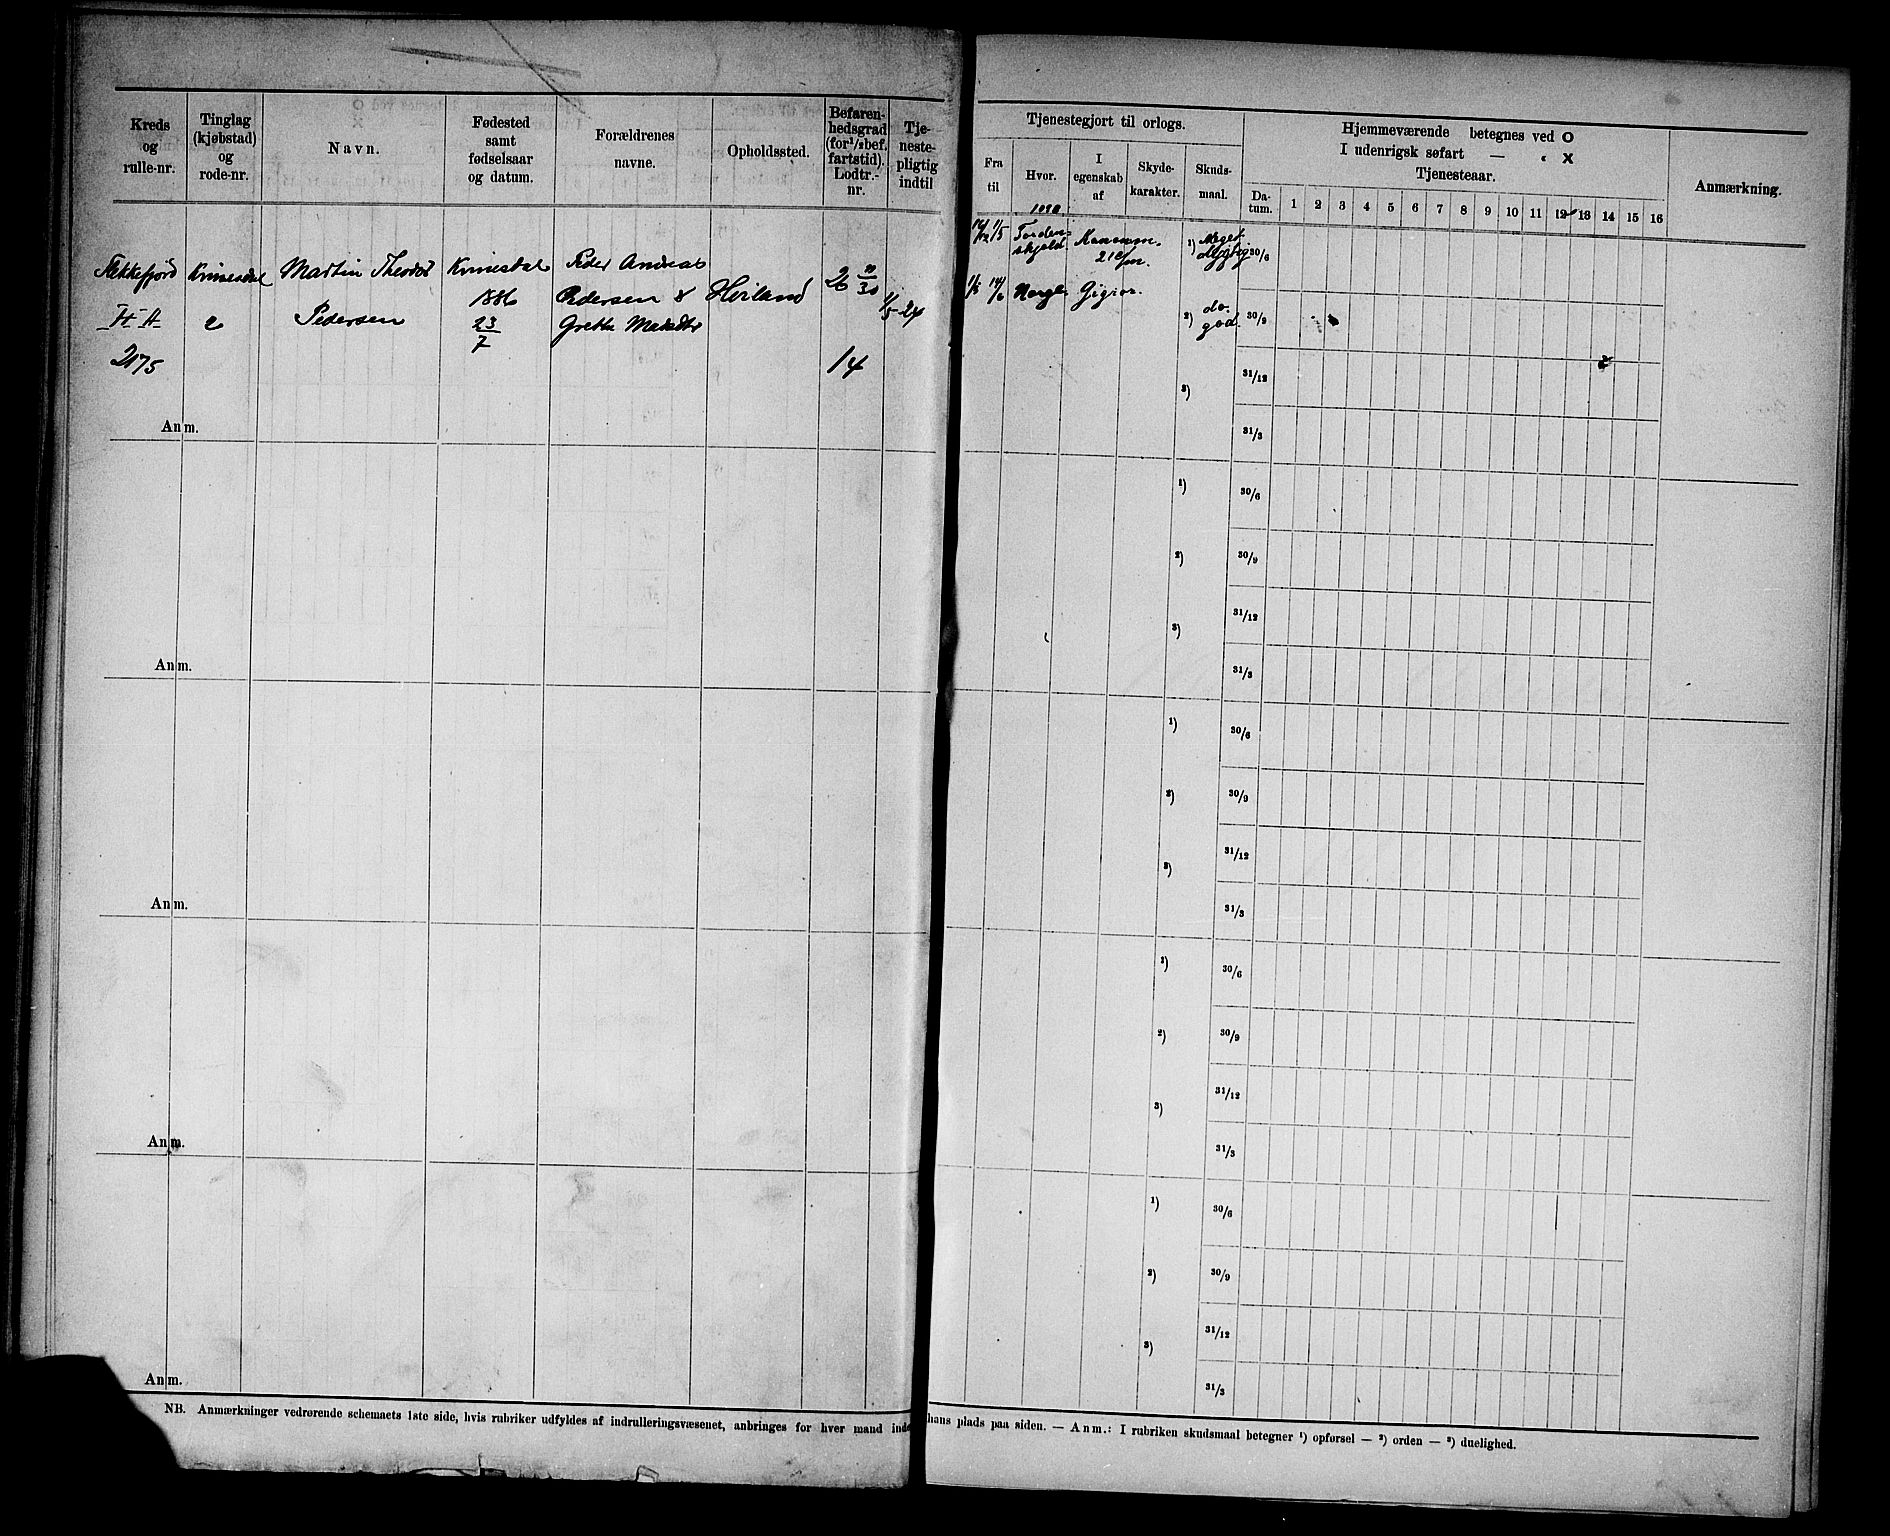 Kreds og rulle-nr.
Tinglag (kjøbstad) og rode-nr.
Navn.
Fødested samt fødselsaar og datum.
Forældrenes navne.
Opholdssted.
Befaren-hedsgrad (for 1/2 bef. fartstid). Lodtr.-nr.
Tje-neste-pligtig indtil
Flekkefjord
H A
2175
Kvinesdal
2
Martin Theodor
Pedersen
Kvinesdal
1886
23/7
Peder Andreas
Pedersen &
Grethe
Høiland
26 11/30
14
1/5 24
Anm.
Anm.
Anm.
Anm.
Anm.
NB. Anmærkninger vedrørende schemaets 1ste side, hvis rubriker udfyldes af indrulleringsvæsenet, anbringes for hver mand inde
Tjenestegjort til orlogs.
Fra til
Hvor.
I egenskab af
Skyde-karakter.
Skuds-maal.
Hjemmeværende betegnes ved O
I udenrigsk søfart — " X
Tjenesteaar.
Da-tum. 1 2 3 4 5 6 7 8 9 10 11 12 13 14 15 16
Anmærkning.
1/5
Torden-
skjold
Kanonm.
21 c/m.
1) Meget
30/6
1/5 14/6 Norge
2) do.
god.
30/9
3)
31/12
31/3
1)
30/6
2)
30/9
3)
31/12
31/3
1)
30/6
2)
30/9
3)
31/12
31/3
1)
30/6
2)
30/9
3)
31/12
31/3
1)
30/6
2)
30/9
3)
31/12
31/3
hans plads paa siden. — Anm.: I rubriken skudsmaal betegner 1) opførsel — 2) orden — 3) duelighed.